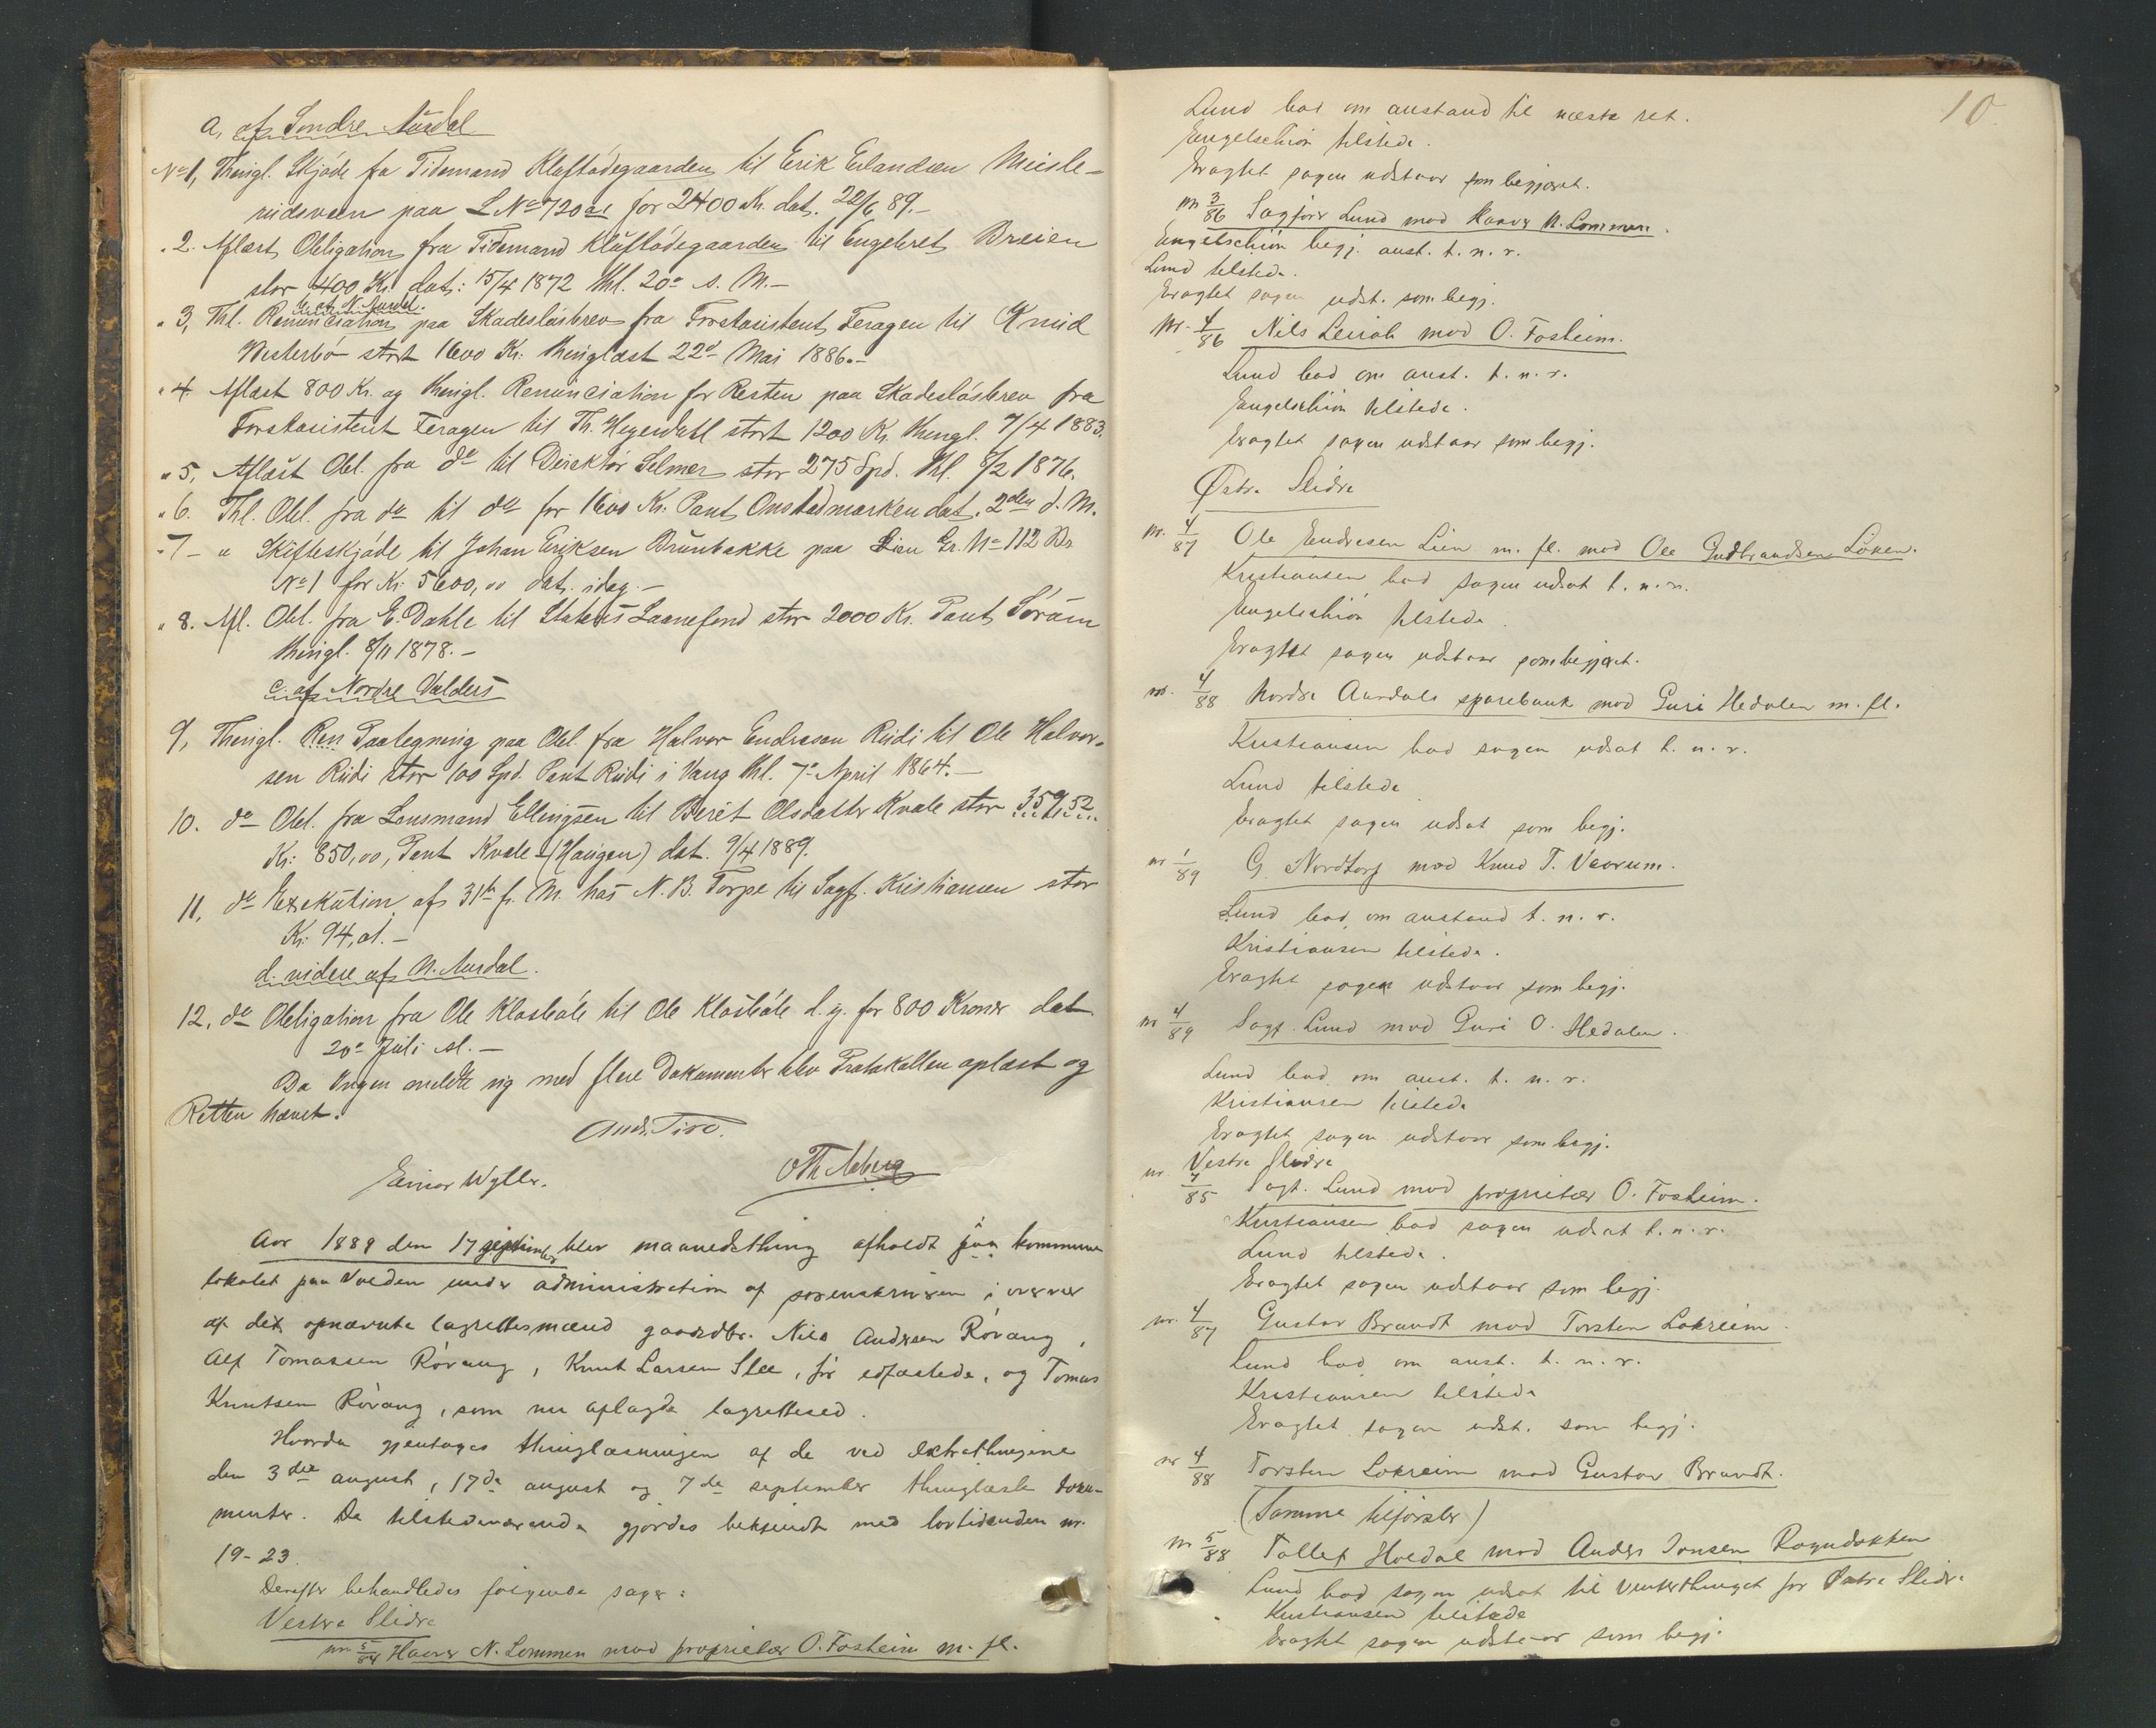 a, af Söndre Aurdal
No 1, Thingl. Skjöde fra Tidemand Klaftådegaarden til Erik Erlandsen Miisle-
rudsveen paa L No 120 a1 for 2400 Kr. dat. 22/6 89.-
" 2. Aflæst Obligation fra Tidemand Kluftödegaarden til Engebret Breien
stor 400 Kr. dat: 15/4 1872 thl. 20de s. M.-
b. af N. Aurdal.
" 3, Thl. Renunciation paa Skadeslösbrev fra Forstasistent Feragen til Knud
Westerbö stort 1600 Kr: thinglæst 22de Mai 1886.-
" 4 Aflæst 800 Kr. og thingl. Renunciation for Resten paa Skadeslösbrev fra
Forstasistent Feragen til Th. Hegerdahl stort 1200 Kr. thingl. 7/4 1883.
" 5, Aflæst Obl. fra do til Direktör Selmer stor 275 Spd. thl. 8/2 1876.
" 6. Thl. Obl. fra do til do for 1600 Kr: Pant Onstadmarken dat. 2den d. M.
" 7 - " Skifteskjöde til Johan Eriksen Brunbakke paa Lien Gr. No 112 Br.
No 1 for Kr: 5600,00 dat. idag.-
" 8. Afl. Obl. fra E. Dahle til Statens Laanefond stor 2000 Kr. Pant Söråm
thingl. 8/11 1878.-
c. af Nordre Valders
9, Thingl. Ren Paategning paa Obl. fra Halvor Endresen Rudi til Ole Halvor-
sen Rudi stor 100 Spd. Pant Rudi i Vang thl. 7de April 1864.-
10. do Obl. fra Lensmand Ellingsen til Berit Olsdatter Kvale stor 359,52
Kr: 850,00, Pant Kvale (Haugen) dat. 9/4 1889.
11, do Exekution af 31te f. M. hos N. B. Torpe til Sagf. Kristiansen stor
Kr: 94,01.-
d. videre af N. Aurdal.
12, do Obligation fra Ole Klosböle til Ole Klosböle d. y. for 800 Kroner dat
20de Juli sl.-
Da Ingen meldte sig med flere Dokumenter blev Protokollen oplæst og
Retten hævet.
Ands. Tiro.
Einar Wyller. OTh Aaberg
Aar 1889 den 17 september blev maanedsthing afholdt paa kommune
lokalet paa Volden under administration af sorenskriveren i overvær
af de opnævnte lagrettesmænd gaardbr. Nils Andersen Rövang,
Alf Tomassen Rövang, Knut Larsen Slee, för edfæstede, og Tomas
Knutsen Rövang, som nu aflagde lagretteed.
Hvorda gjentoges thinglæsningen af de ved extrathingene
den 3die august, 17de august og 7de september thinglæste doku-
menter. De tilstedeværende gjordes bekjendt med lovtidenden nr.
19-23.
Derefter behandledes fölgende sager:
Vestre Slidre
nr 5/84 Haaver N. Lommen mod proprietær O. Fosheim m. fl.
10
Lund bad om anstand til næste ret.
Engelschiön tilstede.
Eragtet sagen udstaar som begjæret.
nr 3/86 Sagförer Lund mod Haaver N. Lommen.
Engelschiön begj. anst. t. n. r.
Lund tilstede.
Eragtet sagen udst. som begj.
Nr. 4/86 Nils Leirol mod O. Fosheim.
Lund bad om anst. t. n. r.
Engelschiön tilstede.
Eragtet sagen udstaar som begj.
Östre Slidre
Nr. 4/87 Ole Endresen Lien m. fl. mod Ole Gudbrandsen Löken.
Kristiansen bad sagen udsat t. n. r.
Engelschiön tilstede.
Eragtet sagen udstaar som begjæret.
nr. 4/88 Nordre Aurdals sparebank mod Guri Hedalen m. fl.
Kristiansen bad sagen udsat t. n. r.
Lund tilstede
Eragtet sagen udsat som begj.
nr 1/89 G. Nordtorp mod Knud T. Vaorum.
Lund bad om anstand t. n. r.
Kristiansen tilstede.
Eragtet sagen udstaar som begj.
nr 4/89 Sagf. Lund mod Guri O. Hedalen.
Lund bad om anst. t. n. r.
Kristiansen tilstede
Eragtet sagen udstaar som begj.
Vestre Slidre
nr. 7/85 Sagf. Lund mod proprietær O. Fosheim.
Kristiansen bad sagen udsat t. n. r.
Lund tilstede.
Eragtet sagen udstaar som begj.
nr. 4/87 Gustav Brandt mod Torsten Lokreim.
Lund bad om anst. t. n. r.
Kristiansen tilstede
Eragtet sagen udst. som begj.
nr 4/88 Torsten Lokreim mod Gustav Brandt.
(Samme tilförsler)
nr 5/88 Tollef Hoedal mod Anders Jonsen Rogndokken
Lund bad sagen udsat til vinterthinget for Östre Slidre
Kristiansen tilstede
Eragtet sagen udstaar som begj.